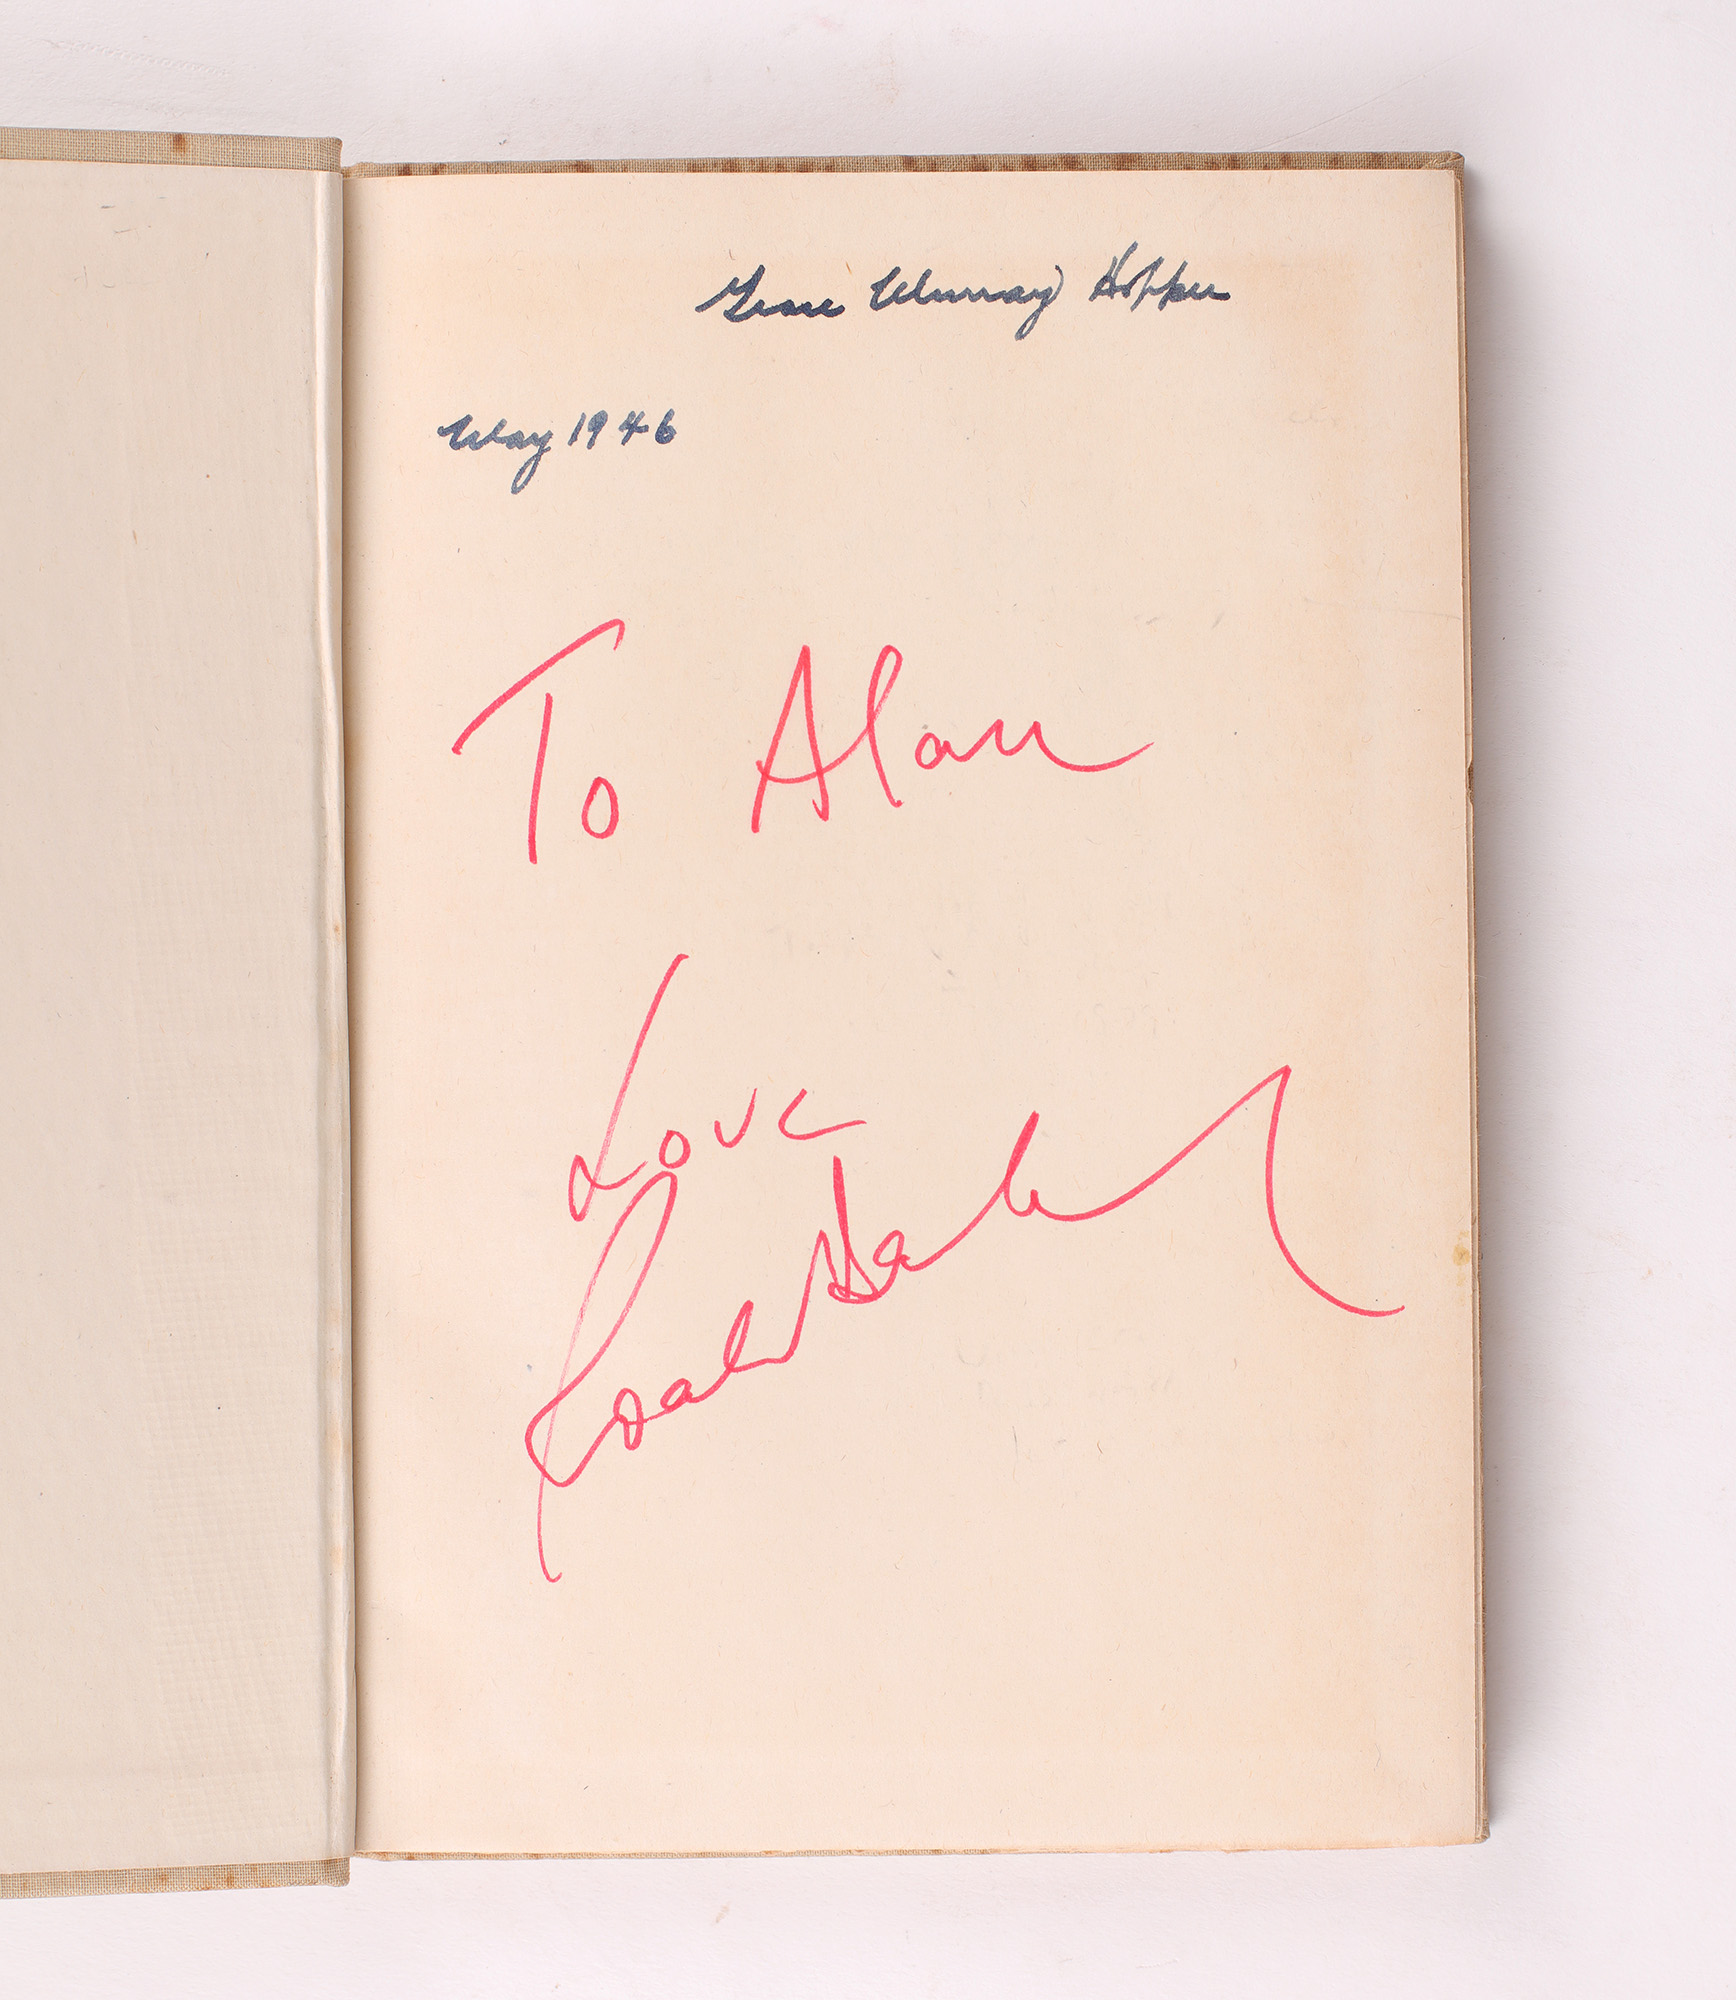 Grace Murray Hopper
May 1946
To Alan
Love
Roald Dahl